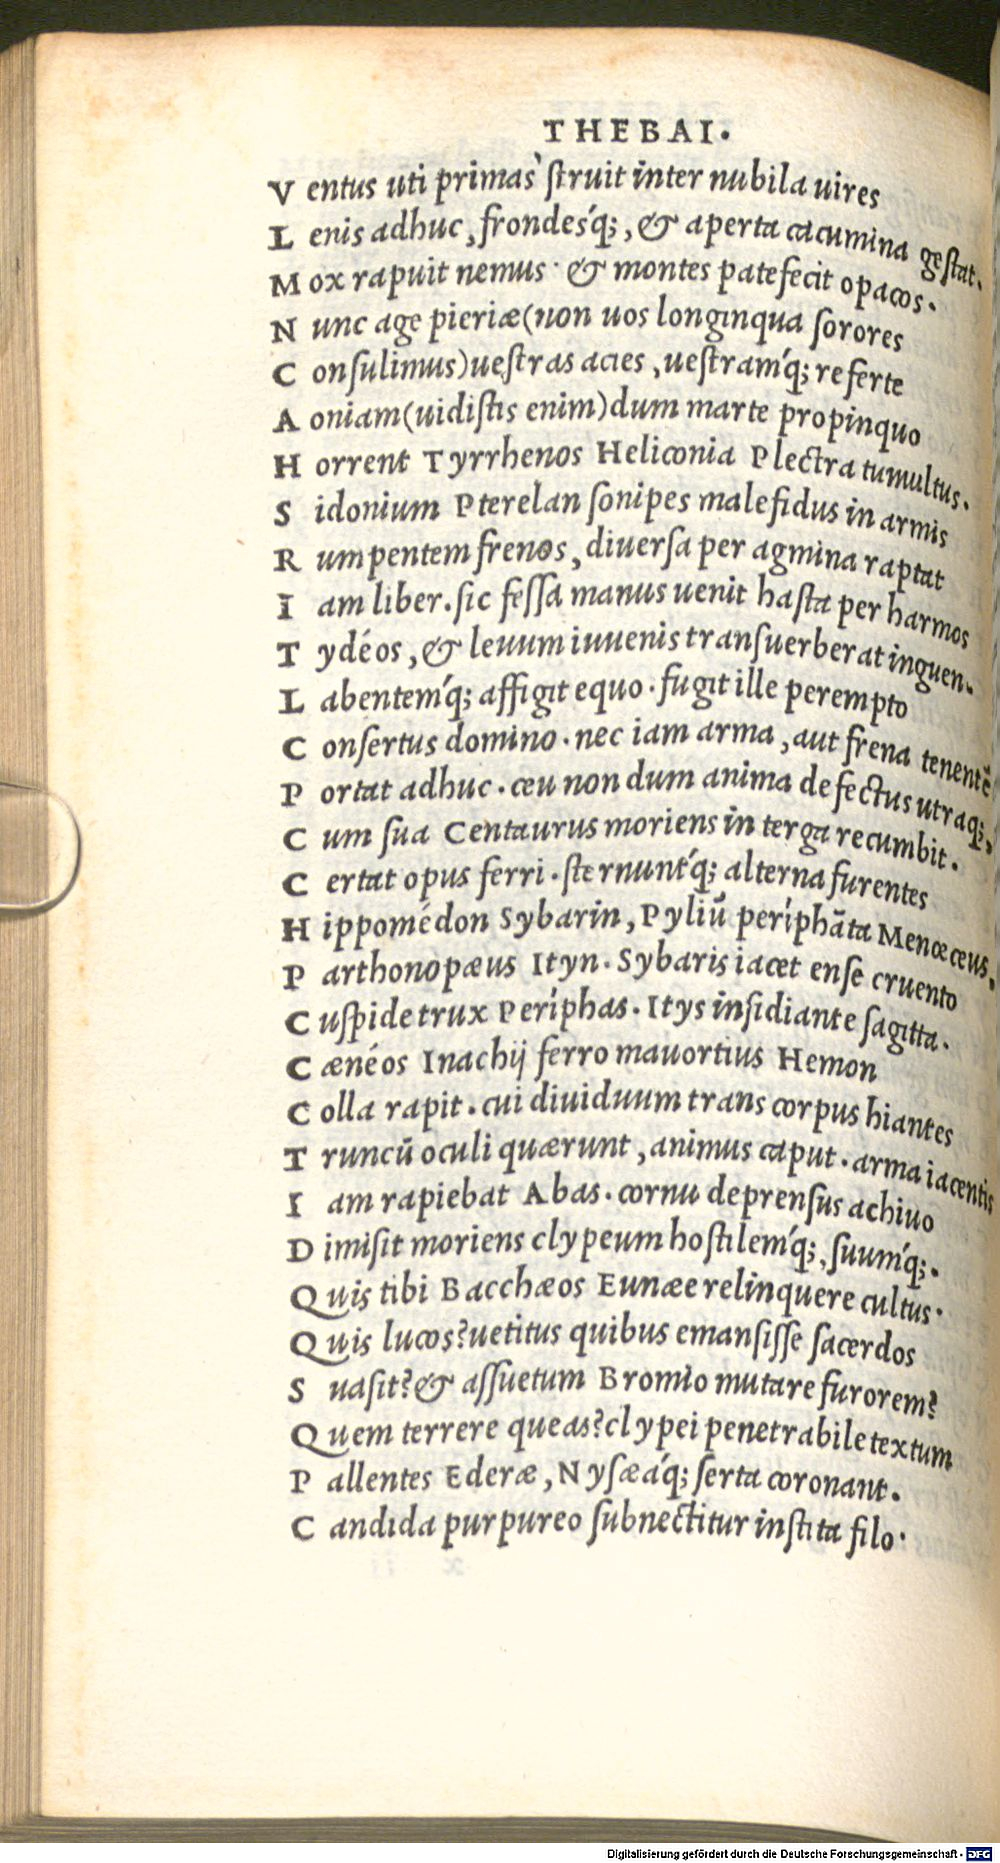 THEBAI.
Ventus uti primas ſtruit inter nubila uires
Lenis adhuc, frondesq́;, & aperta cacumina geſtat.
Mox rapuit nemus· & montes patefecit opacos.
Nunc age pieriæ(non uos longinqua ſorores
Conſulimus)ueſtras acies, ueſtramq́; referte
Aoniam(uidiſtis enim)dum marte propinquo
Horrent Tyrrhenos Heliconia Plectra tumultus.
Sidonium Pterelan ſonipes malefidus in armis
Rumpentem frenos, diuerſa per agmina raptat
Iam liber. ſic feſſa manus uenit haſta per harmos
Tydéos, & leuum iuuenis tranſuerberat inguen.
Labentemq́; affigit equo. fugit ille perempto
Conſertus domino. nec iam arma, aut frena tenentẽ
Portat adhuc. ceu non dum anima defectus utraq;,
Cum ſua Centaurus moriens in terga recumbit.
Certat opus ferri. ſternuntq́; alterna furentes
Hippomédon Sybarin, Pyliũ períphãta Menœceus.
Parthonopæus Ityn. Sybaris iacet enſe cruento
Cuſpide trux Períphas. Itys inſidiante ſagitta.
Cænéos Inachij ferro mauortius Hemon
Colla rapit. cui diuiduum trans corpus hiantes
Truncũ oculi quærunt, animus caput. arma iacentis
Iam rapiebat Abas. cornu deprenſus achiuo
Dimiſit moriens clypeum hoſtilemq́;, ſuumq́;.
Quis tibi Bacchæos Eunæe relinquere cultus·
Quis lucos? uetitus quibus emanſiſſe ſacerdos
Suaſit? & aſſuetum Bromio mutare furorem?
Quem terrere queas? clypei penetrabile textum
Pallentes Ederæ, Nyſæáq; ſerta coronant.
Candida purpureo ſubnectitur inſtita filo·
Digitalisierung gefördert durch die Deutsche Forschungsgemeinschaft - DFG